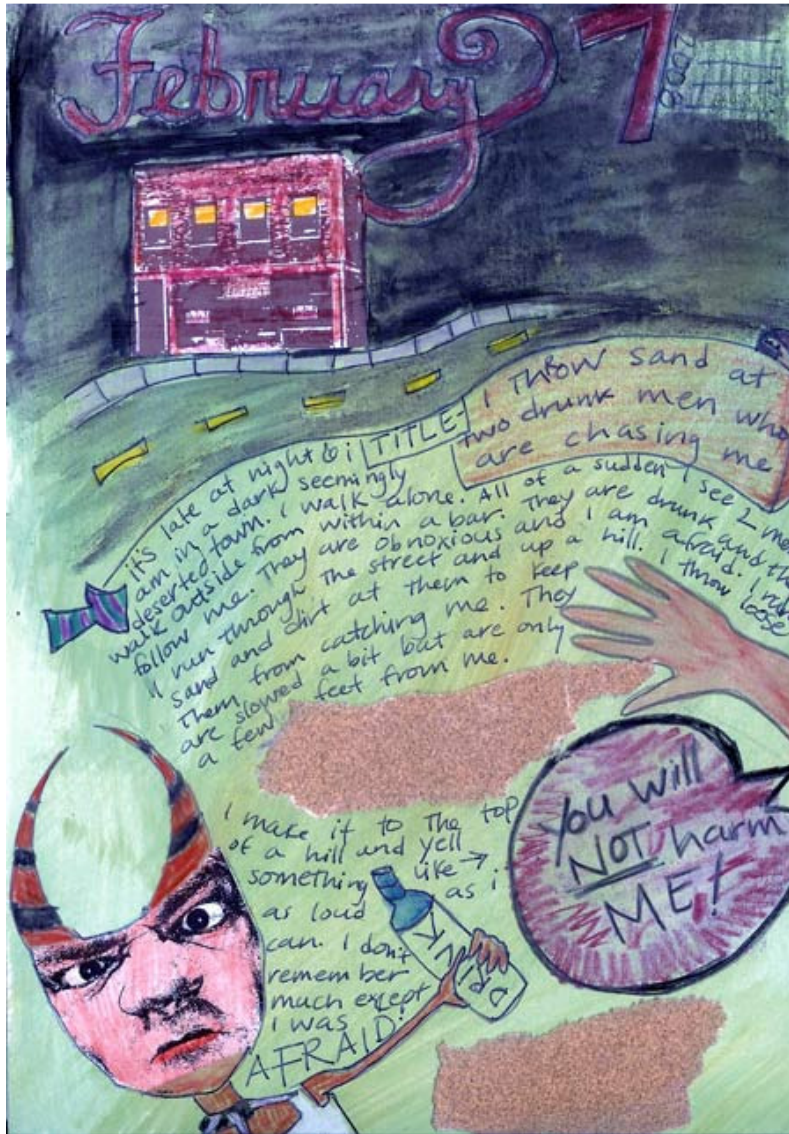 February 7
2006
TITLE-
I THROW sand at
two drunk men who
are chasing me
it's late at night & i
am in a dark seemingly
deserted town. I walk alone. All of a sudden I see 2 me
walk outside from within a bar. They are drunk and th
follow me. They are obnoxious and I am afraid. I run
I run through the street and up a hill. I throw loose
sand and dirt at them to keep
them from catching me. They
are slowed a bit but are only
a few feet from me.
I make it to the top
of a hill and yell
something like →
as loud as i
can. I don't
remember
much except
i was
AFRAID!
DRINK
You will
NOT harm
ME!